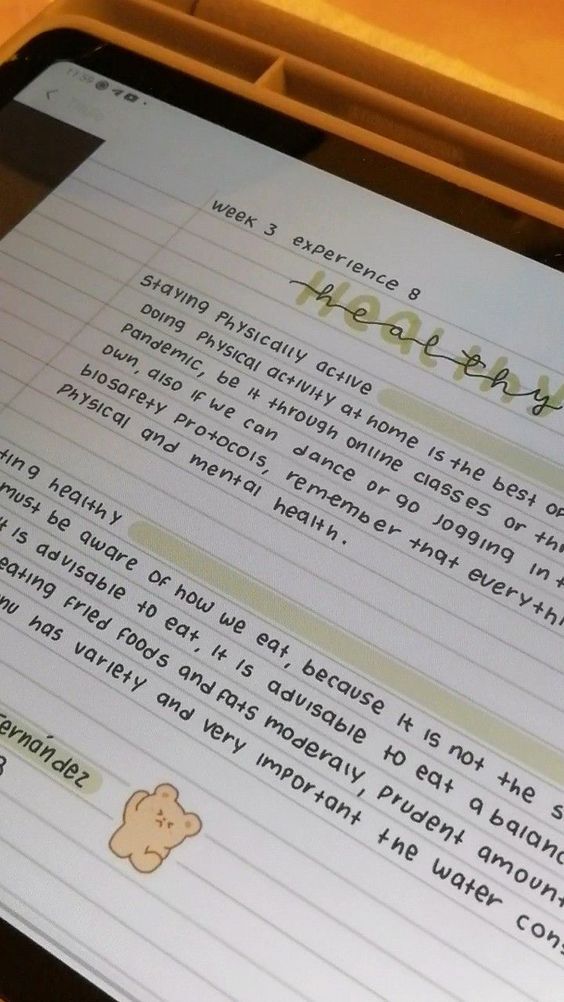 11:59
week 3 experience 8
Healthy
healthy
Staying Physically active
Doing Physical activity at home is the best
pandemic, be it through online classes or
own, also if we can dance or go jogging in
biosafety protocols, remember that
physical and mental health.
healthy
must be aware of how we eat, because it is not the
is advisable to eat, it is advisable to eat a
eating fried foods and fats moderaly, prudent
has variety and very important the water
Fernández